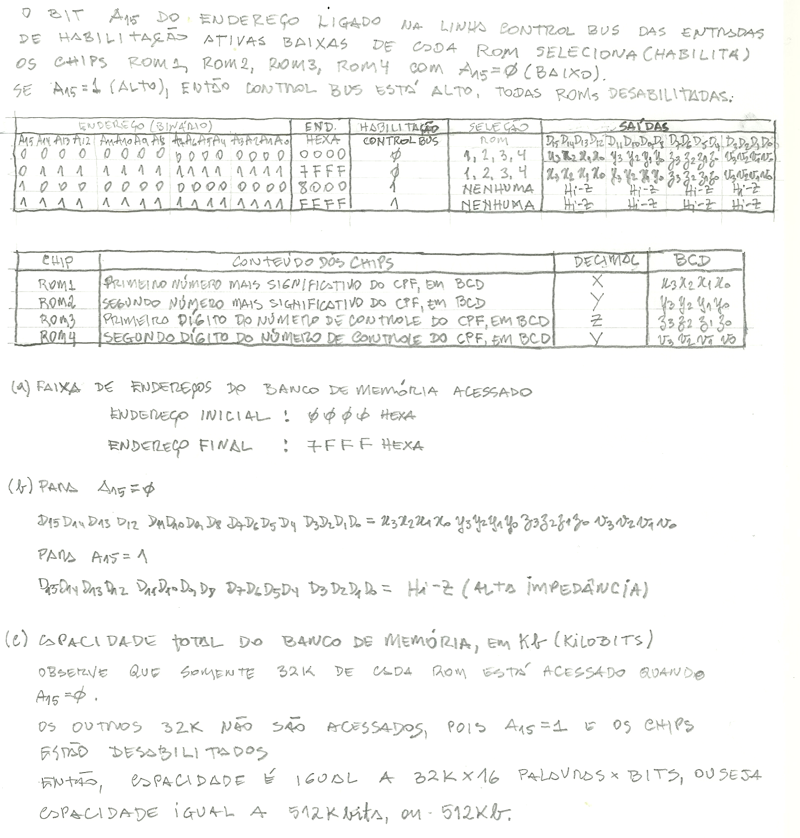 O BIT A15 DO ENDEREÇO LIGADO NA LINHA CONTROL BUS DAS ENTRADAS
DE HABILITAÇÃO ATIVAS BAIXAS DE CADA ROM SELECIONA (HABILITA)
OS CHIPS ROM1, ROM2, ROM3, ROM4 COM A15=φ (BAIXO).
SE A15=1 (ALTO), ENTÃO CONTROL BUS ESTÁ ALTO, TODAS ROMs DESABILITADAS.
ENDEREÇO (BINÁRIO) END. HABILITAÇÃO SELEÇÃO SAÍDAS
A15 A14 A13 A12 A11 A10 A9 A8 A7 A6 A5 A4 A3 A2 A1 A0 HEXA CONTROL BUS ROM D15 D14 D13 D12 D11 D10 D9 D8 D7 D6 D5 D4 D3 D2 D1 D0
0 0 0 0 0 0 0 0 0 0 0 0 0 0 0 0 0000 φ 1, 2, 3, 4 x3 x2 x1 x0 y3 y2 y1 y0 z3 z2 z1 z0 v3 v2 v1 v0
0 1 1 1 1 1 1 1 1 1 1 1 1 1 1 1 7FFF φ 1, 2, 3, 4 x3 x2 x1 x0 y3 y2 y1 y0 z3 z2 z1 z0 v3 v2 v1 v0
1 0 0 0 0 0 0 0 0 0 0 0 0 0 0 0 8000 1 NENHUMA Hi-Z Hi-Z Hi-Z Hi-Z
1 1 1 1 1 1 1 1 1 1 1 1 1 1 1 1 FFFF 1 NENHUMA Hi-Z Hi-Z Hi-Z Hi-Z
CHIP CONTEÚDO DOS CHIPS DECIMAL BCD
ROM1 PRIMEIRO NÚMERO MAIS SIGNIFICATIVO DO CPF, EM BCD X x3 x2 x1 x0
ROM2 SEGUNDO NÚMERO MAIS SIGNIFICATIVO DO CPF, EM BCD Y y3 y2 y1 y0
ROM3 PRIMEIRO DÍGITO DO NÚMERO DE CONTROLE DO CPF, EM BCD Z z3 z2 z1 z0
ROM4 SEGUNDO DÍGITO DO NÚMERO DE CONTROLE DO CPF, EM BCD V v3 v2 v1 v0
(a) FAIXA DE ENDEREÇOS DO BANCO DE MEMÓRIA ACESSADO
ENDEREÇO INICIAL : φφφφ HEXA
ENDEREÇO FINAL : 7FFF HEXA
(b) PARA A15=φ
D15 D14 D13 D12 D11 D10 D9 D8 D7 D6 D5 D4 D3 D2 D1 D0 = x3 x2 x1 x0 y3 y2 y1 y0 z3 z2 z1 z0 v3 v2 v1 v0
PARA A15=1
D15 D14 D13 D12 D11 D10 D9 D8 D7 D6 D5 D4 D3 D2 D1 D0 = Hi-Z (ALTA IMPEDÂNCIA)
(c) CAPACIDADE TOTAL DO BANCO DE MEMÓRIA, EM Kb (KILOBITS)
OBSERVE QUE SOMENTE 32K DE CADA ROM ESTÁ ACESSADO QUANDO
A15=φ.
OS OUTROS 32K NÃO SÃO ACESSADOS, POIS A15=1 E OS CHIPS
ESTÃO DESABILITADOS
ENTÃO, CAPACIDADE É IGUAL A 32K x 16 PALAVRAS x BITS, OU SEJA
CAPACIDADE IGUAL A 512 K bits, ou 512Kb.